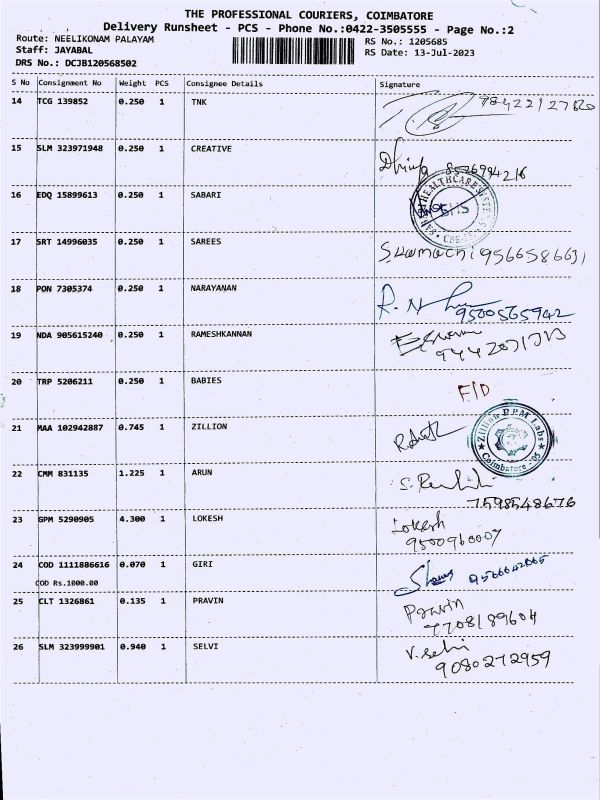 THE PROFESSIONAL COURIERS, COIMBATORE
Delivery Runsheet - PCS - Phone No.:0422-3505555 - Page No.:2
Route: NEELIKONAM PALAYAM
Staff: JAYABAL
DRS No.: DCJB120568502
RS No.: 1205685
RS Date: 13-Jul-2023
S No Consignment No Weight PCS Consignee Details Signature
14 TCG 139852 0.250 1 TNK
15 SLM 323971948 0.250 1 CREATIVE 8526994216
16 EDQ 15899613 0.250 1 SABARI
17 SRT 14996035 0.250 1 SAREES 9566586631
18 PON 7305374 0.250 1 NARAYANAN 9500565942
19 NDA 905615240 0.250 1 RAMESHKANNAN
20 TRP 5206211 0.250 1 BABIES F/D
21 MAA 102942887 0.745 1 ZILLION Zillion Labs Coimbatore - 05
22 CMM 831135 1.225 1 ARUN 7598548676
23 GPM 5290905 4.300 1 LOKESH Lokesh
9500960007
24 COD 1111886616 0.070 1 GIRI
COD Rs.1000.00
25 CLT 1326861 0.135 1 PRAVIN Pravin
7708189604
26 SLM 323999901 0.940 1 SELVI V. Selvi
9080272959